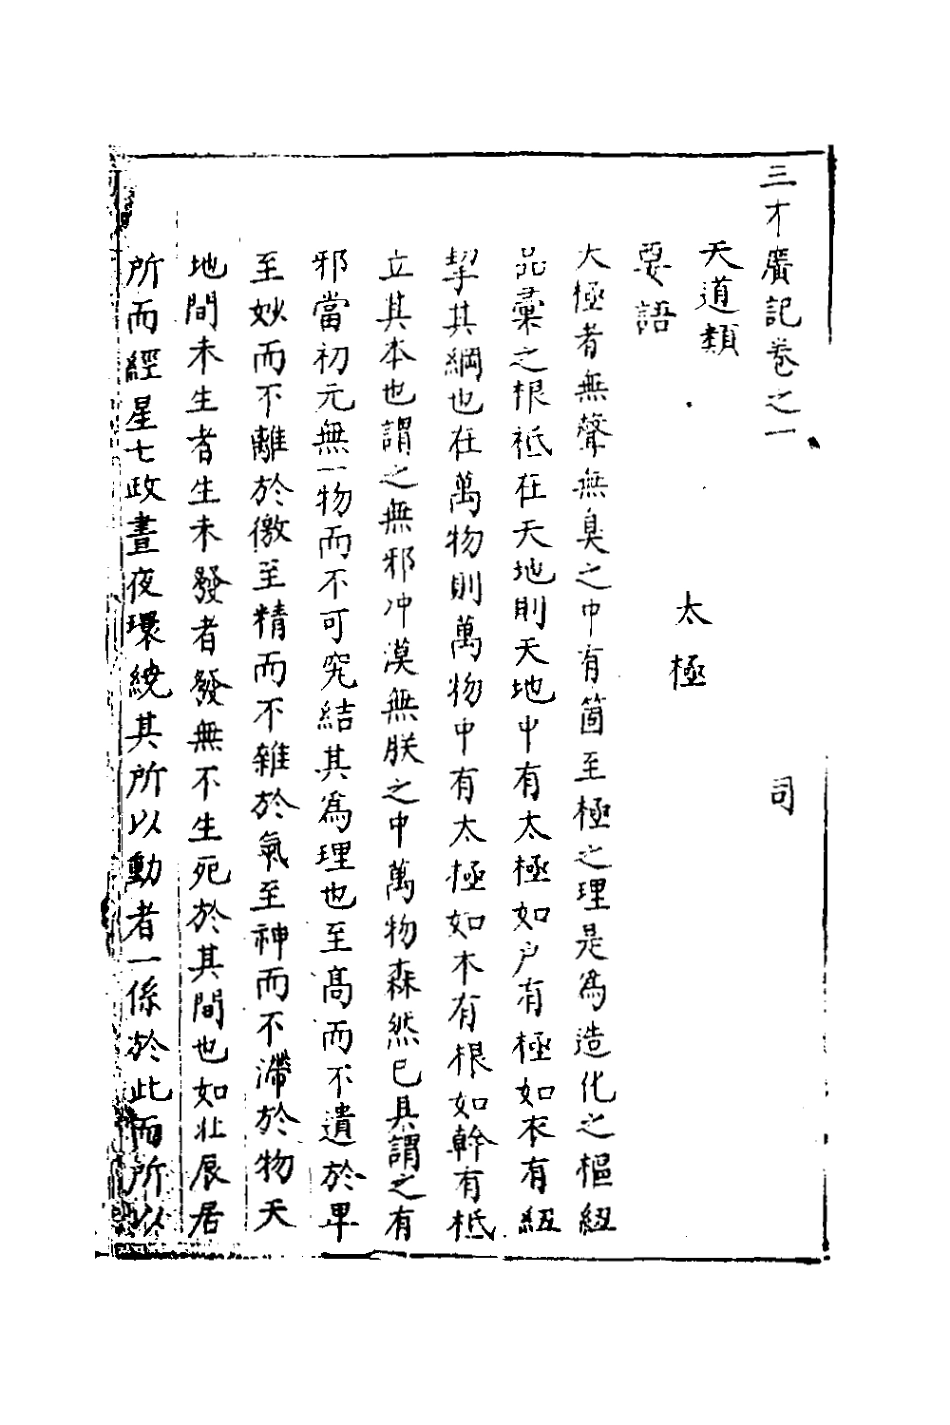 三才廣記卷之一　司
天道類　太極
要語
大極者無聲無臭之中有箇至極之理是爲造化之樞紐
品彙之根柢在天地則天地中有太極如户有極如衣有紐
挈其綱也在萬物則萬物中有太極如木有根如幹有柢
立其本也謂之無邪冲漠無朕之中萬物森然已具謂之有
邪當初元無一物而不可究結其爲理也至髙而不遺於卑
至妙而不離於徼至精而不雜於氣至神而不滯於物天
地間未生者生未發者發無不生死於其間也如北辰居
所而經星七政晝夜環繞其所以動者一係於此而所以